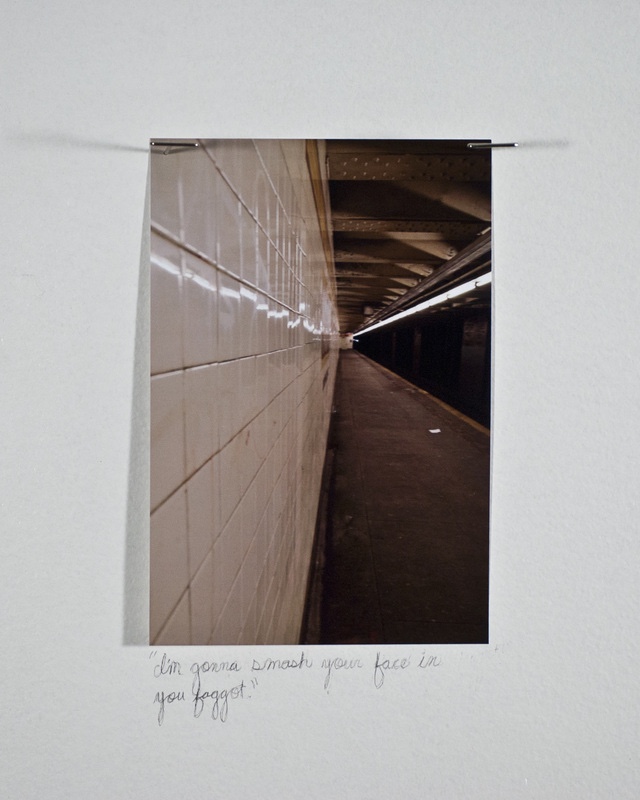 "I'm gonna smash your face in
you faggot."